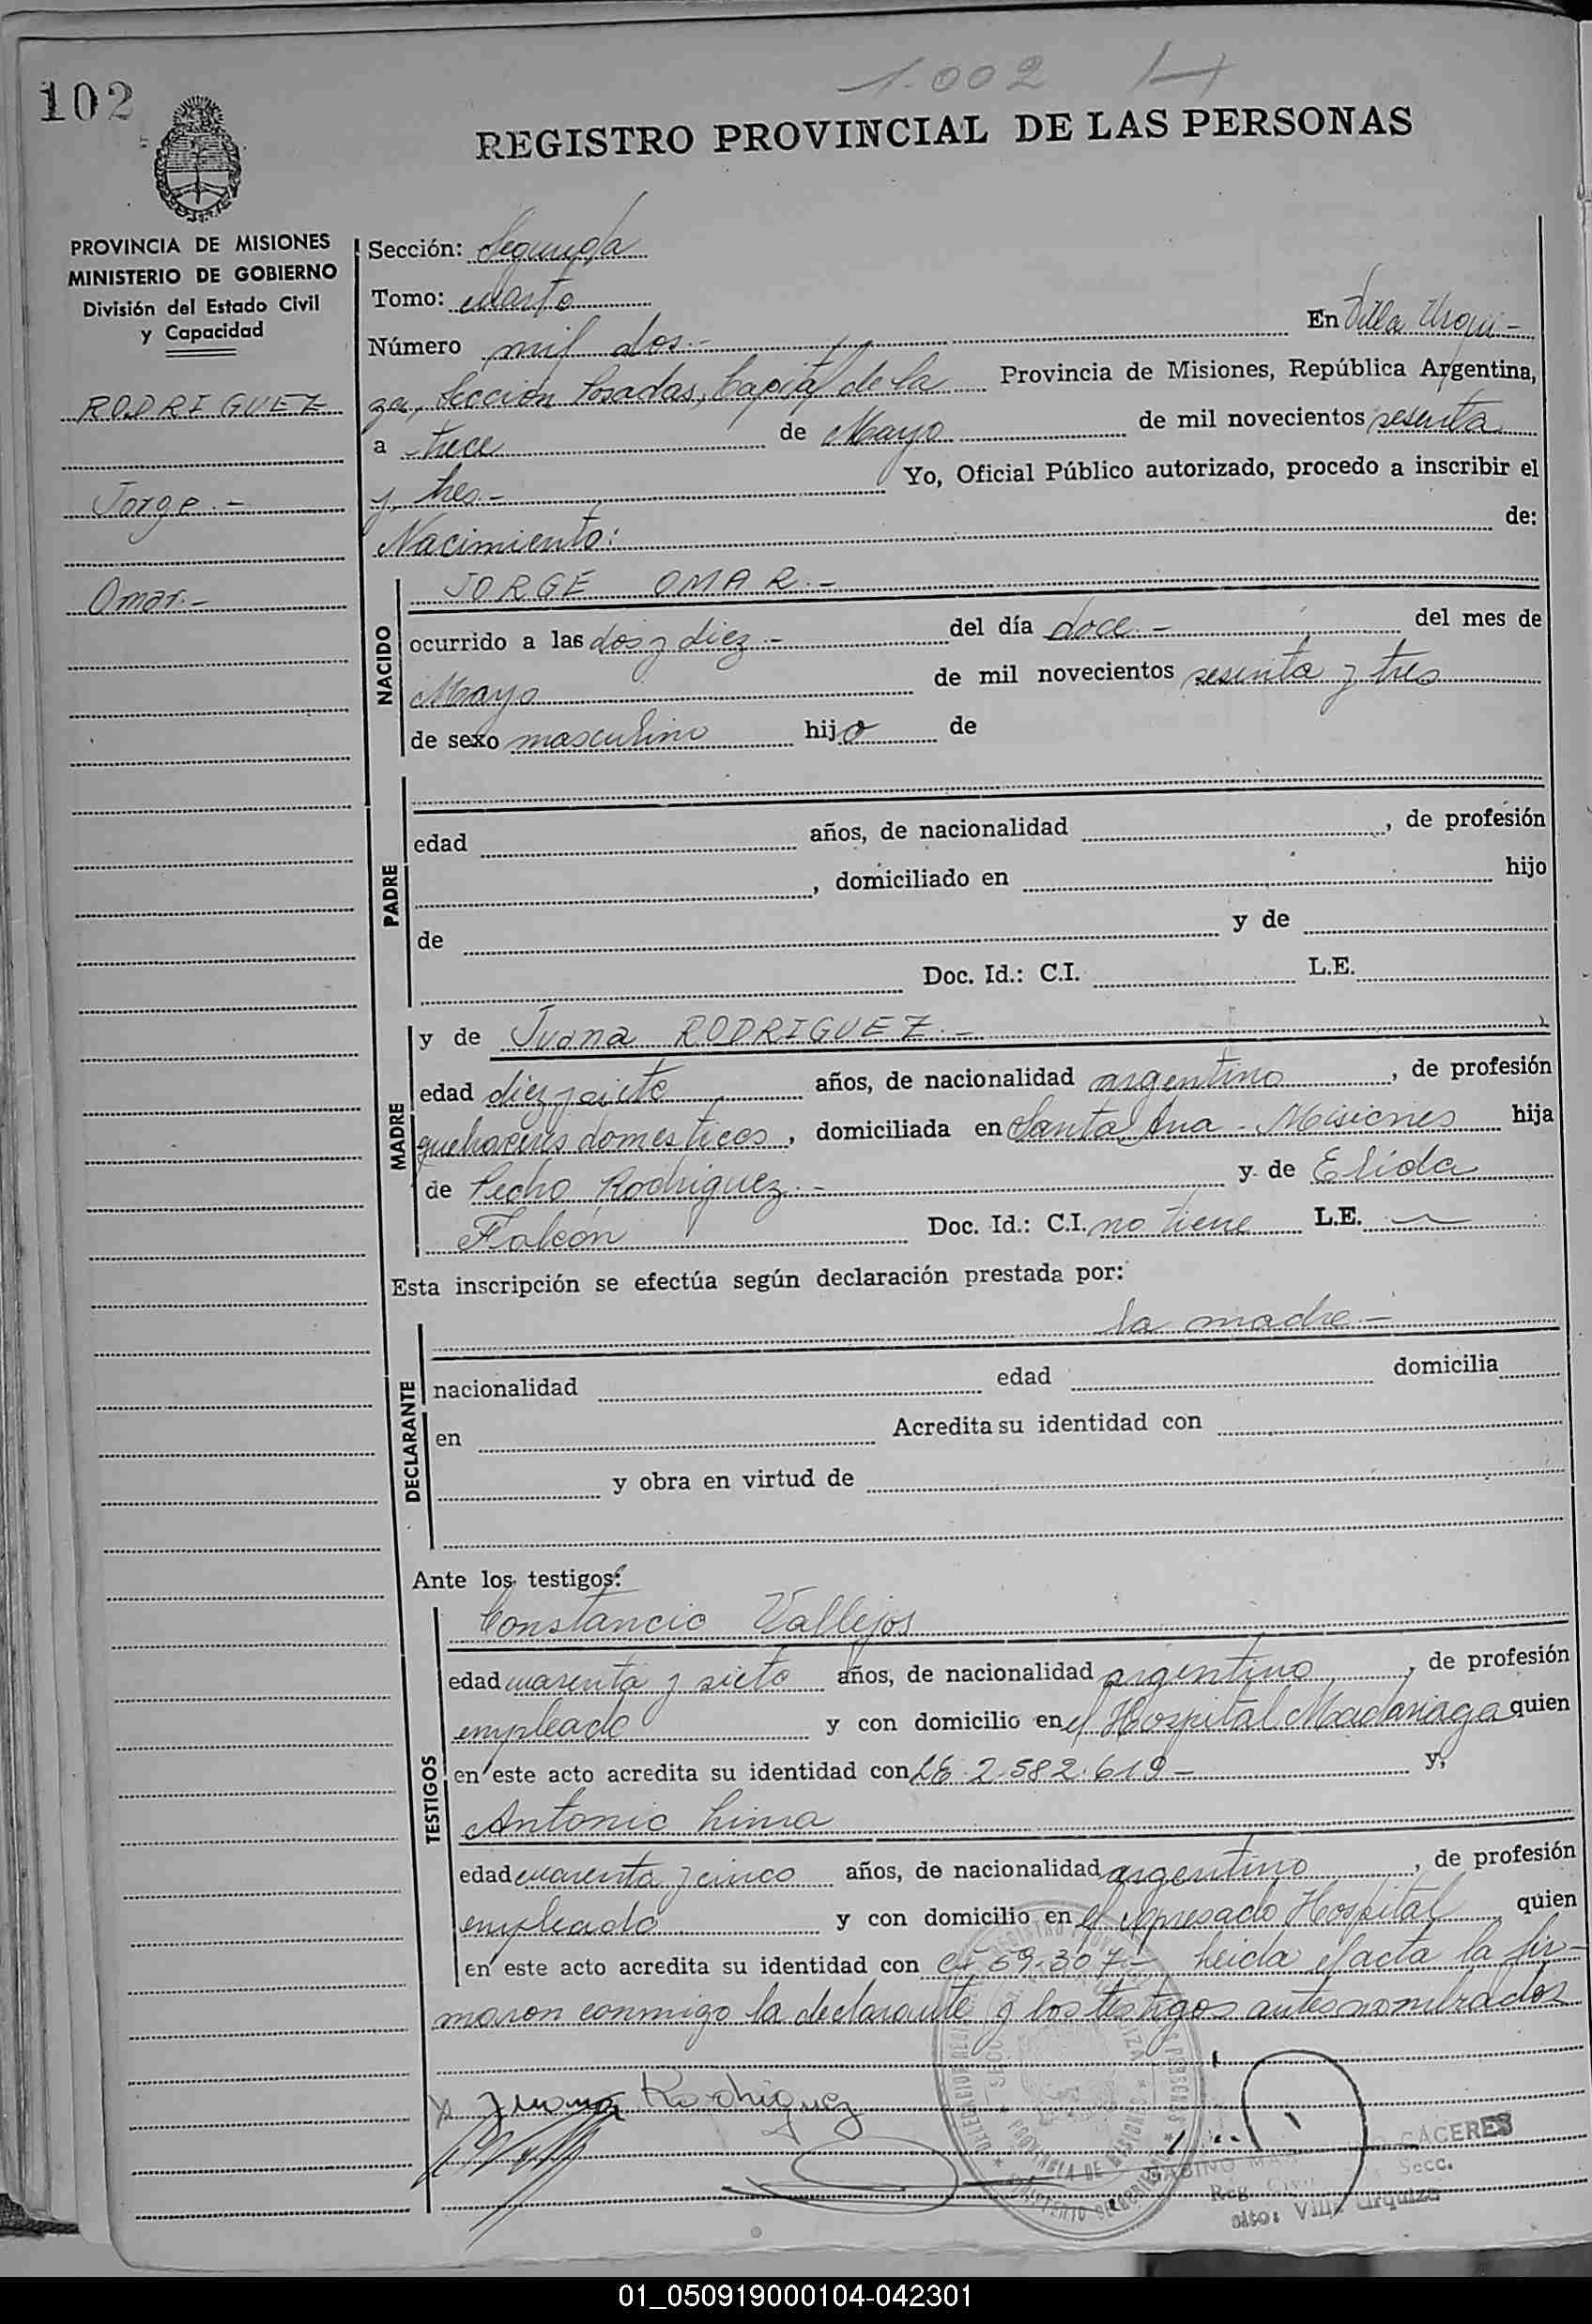 1.002
102
REGISTRO PROVINCIAL DE LAS PERSONAS
PROVINCIA DE MISIONES
MINISTERIO DE GOBIERNO
División del Estado Civil
y Capacidad
RODRIGUEZ
Jorge.-
Omar.-
Sección: Segunda
Tomo: cuarto
Número mil dos.- En Villa Urqui-
za, Sección Posadas, Capital de la Provincia de Misiones, República Argentina,
a trece de Mayo de mil novecientos sesenta
y tres.- Yo, Oficial Público autorizado, procedo a inscribir el
Nacimiento: de:
NACIDO
JORGE OMAR.-
ocurrido a las dos y diez.- del día doce.- del mes de
Mayo de mil novecientos sesenta y tres
de sexo masculino hijo de
PADRE
edad años, de nacionalidad , de profesión
, domiciliado en hijo
de y de
Doc. Id.: C.I. L.E.
MADRE
y de Juana RODRIGUEZ.-
edad diez y siete años, de nacionalidad argentina, de profesión
quehaceres domesticos, domiciliada en Santa Ana - Misiones hija
de Pedro Rodriguez.- y de Elida
Falcón Doc. Id.: C.I. no tiene L.E.
Esta inscripción se efectúa según declaración prestada por:
DECLARANTE
la madre.-
nacionalidad edad domicilia
en Acredita su identidad con
y obra en virtud de
Ante los testigos:
TESTIGOS
Constancio Vallejos
edad cuarenta y siete años, de nacionalidad argentino, de profesión
empleado y con domicilio en el Hospital Madariaga quien
en este acto acredita su identidad con LE 2.582.619- y,
Antonio Lima
edad cuarenta y cinco años, de nacionalidad argentino, de profesión
empleado y con domicilio en el expresado Hospital quien
en este acto acredita su identidad con CI 69.307- Leida el acta la fir-
maron conmigo la declarante y los testigos antes nombrados
x Juana Rodriguez
PROVINCIA DE MISIONES
GABINO CACERES
Reg. Secc.
sito: Villa Urquiza
01_050919000104-042301